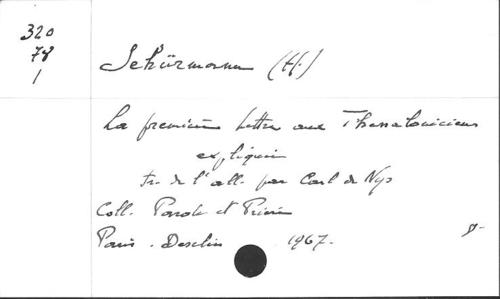 320
78
1
Schürmann (H.)
La première lettre aux Thessaloniciens
expliquée
tr. de l'all. par Carl de Nys
Coll. Parole et Prière
Paris. Desclée 1967.